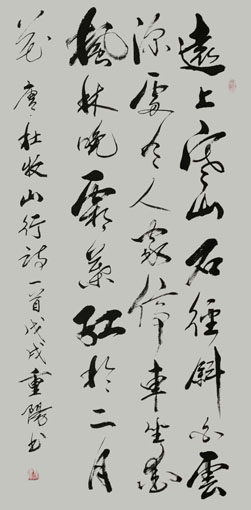 遠上寒山石徑斜白雲
深處有人家停車坐愛
楓林晚霜葉紅於二月
花 唐杜牧山行詩一首戊戌重陽書